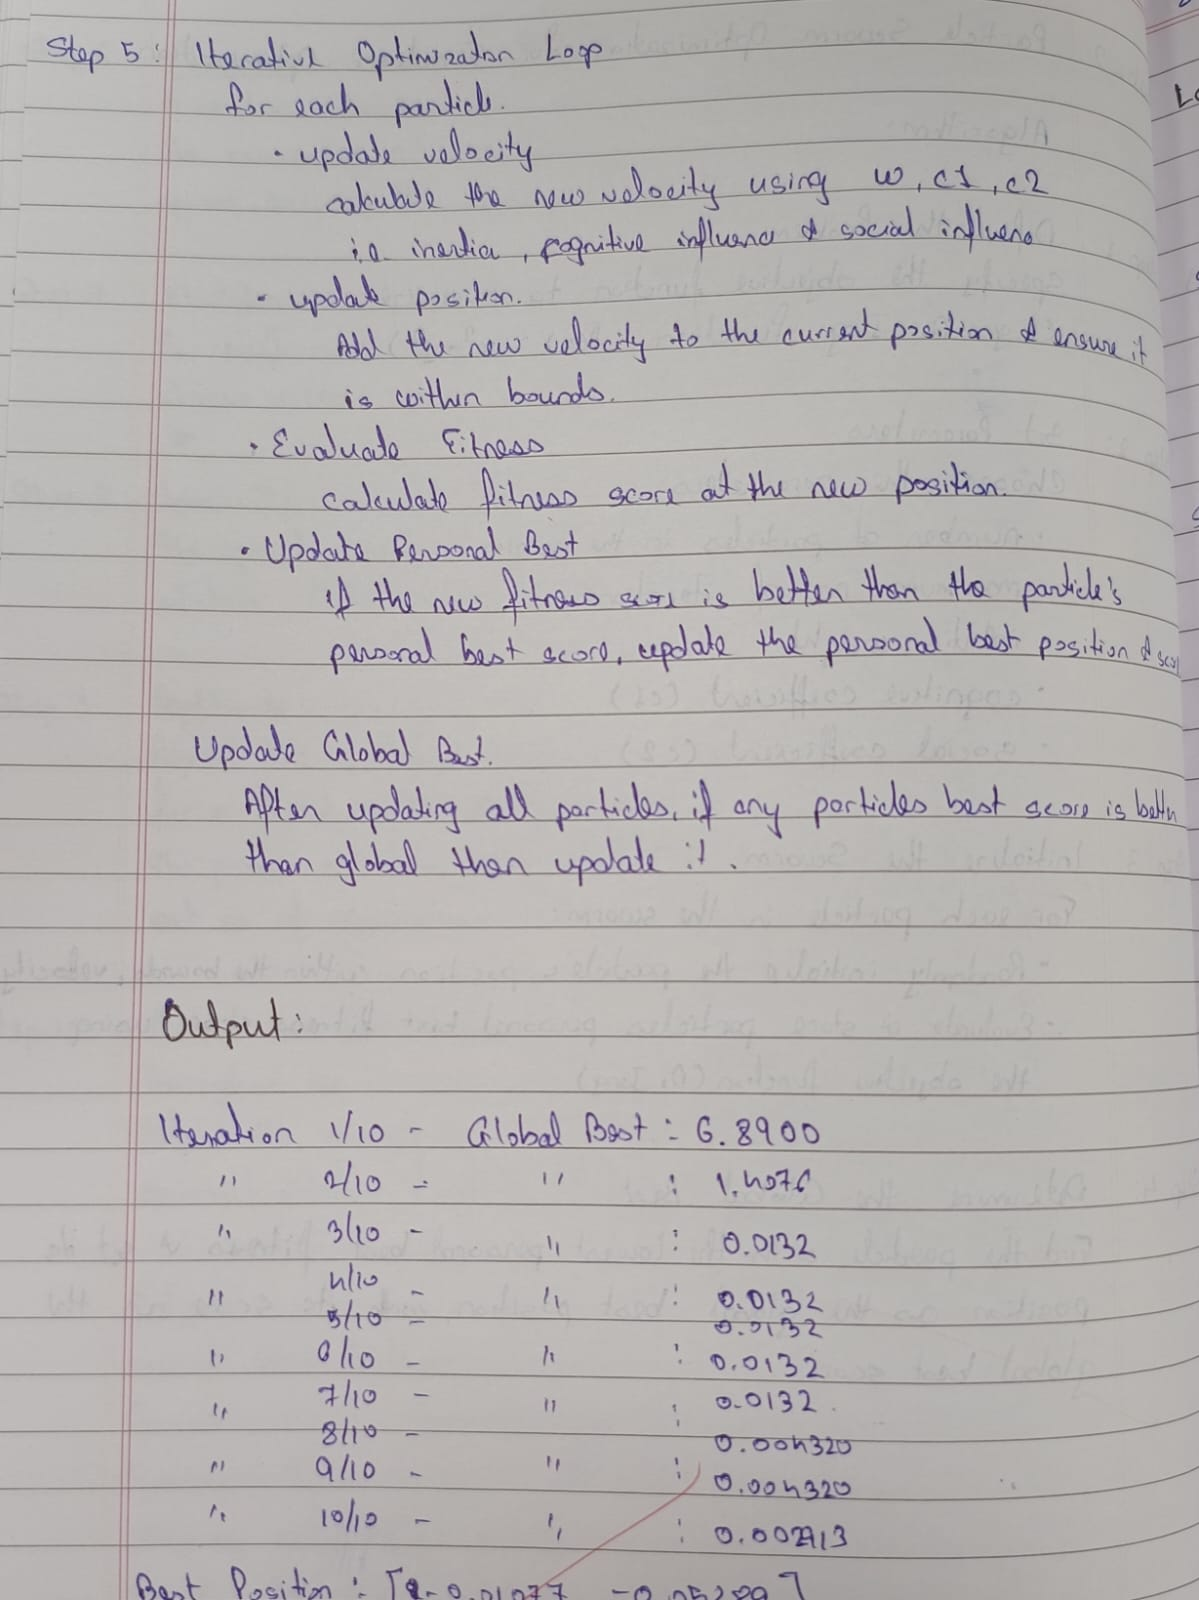 Step 5: Iterative Optimization Loop
for each particle.
• update velocity
calculate the new velocity using w, c1, c2
i.e. inertia, cognitive influence & social influence
• update position.
Add the new velocity to the current position & ensure it
is within bounds.
• Evaluate Fitness
calculate fitness score at the new position.
• Update Personal Best
if the new fitness score is better than the particle's
personal best score, update the personal best position &
Update Global Best.
After updating all particles, if any particles best score is better
than global then update it.
Output:
Iteration 1/10 - Global Best: 6.8900
" 2/10 - " : 1.4076
" 3/10 - " : 0.0132
" 4/10 - " : 0.0132
5/10 - 0.0132
" 6/10 - " : 0.0132
" 7/10 - " : 0.0132
8/10 - 0.004320
" 9/10 - " : 0.004320
" 10/10 - " : 0.002913
Best Position: